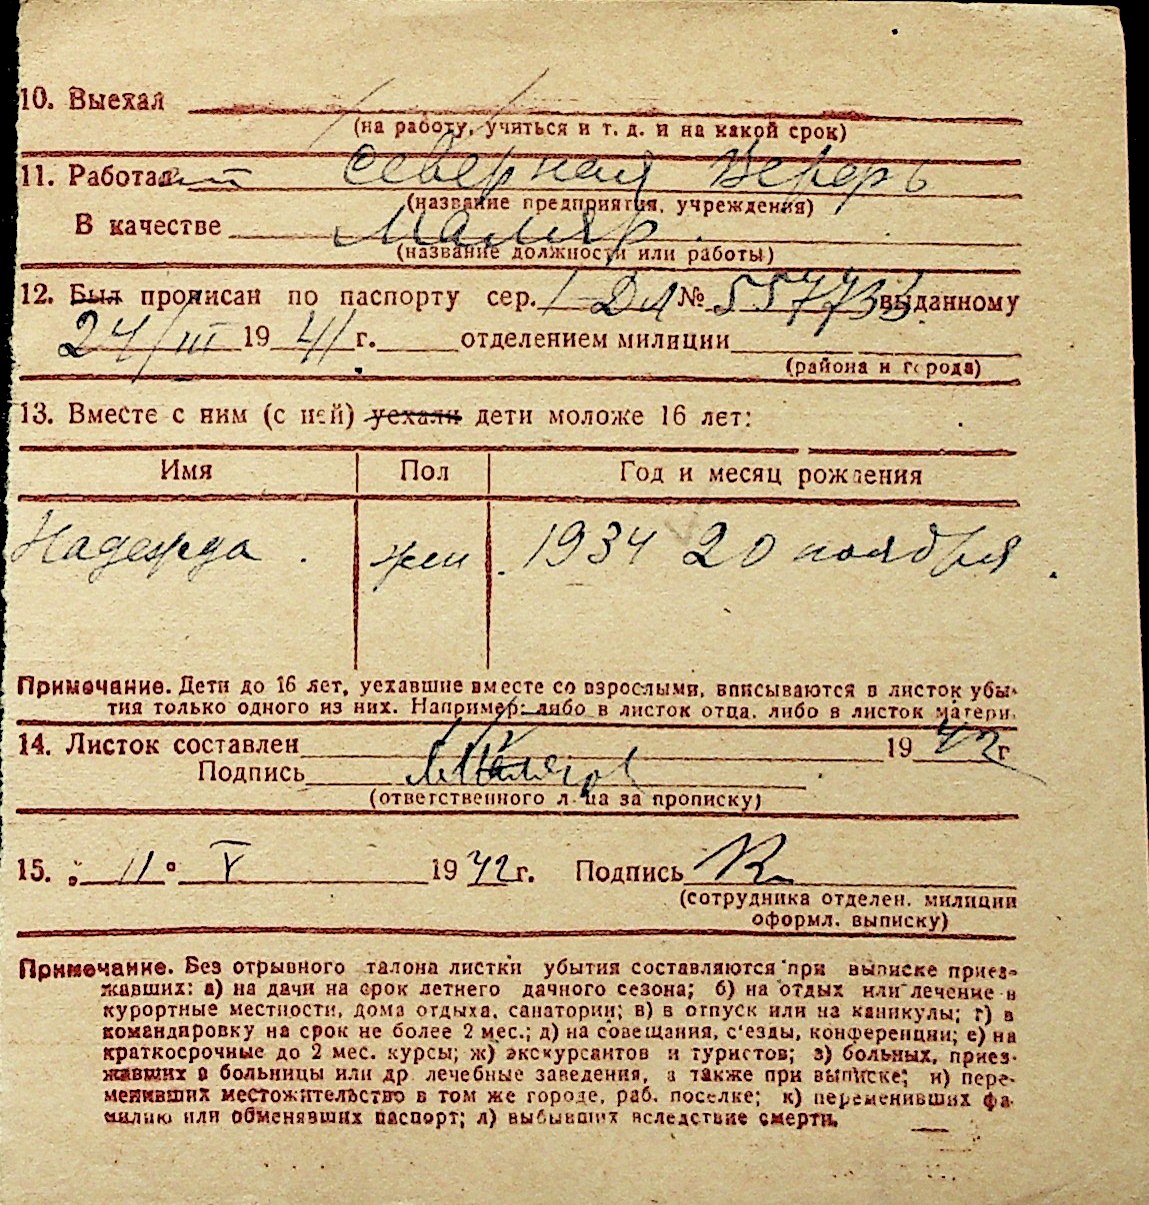 10. Выехал
(на работу, учиться и т. д. и на какой срок)
11. Работает Северная Верфь
(название предприятия, учреждения)
В качестве Маляр.
(название должности или работы)
12. Был прописан по паспорту сер. I-Дл № 557733 выданному
24/III 1941 г. отделением милиции
(района и города)
13. Вместе с ним (с ней) уехали дети моложе 16 лет:
Имя Пол Год и месяц рождения
Надежда . жен . 1934 20 ноября .
Примечание. Дети до 16 лет, уехавшие вместе со взрослыми, вписываются в листок убы-
тия только одного из них. Например: либо в листок отца, либо в листок матери.
14. Листок составлен 1942 г
Подпись
(ответственного лица за прописку)
15. „11" V 1942 г. Подпись
(сотрудника отделен. милиции
оформл. выписку)
Примечание. Без отрывного талона листки убытия составляются при выписке приез-
жавших: а) на дачи на срок летнего дачного сезона; б) на отдых или лечение в
курортные местности, дома отдыха, санатории; в) в отпуск или на каникулы; г) в
командировку на срок не более 2 мес.; д) на совещания, с'езды, конференции; е) на
краткосрочные до 2 мес. курсы; ж) экскурсантов и туристов; з) больных, приез-
жавших в больницы или др лечебные заведения, а также при выписке; и) пере-
менивших местожительство в том же городе, раб. поселке; к) переменивших фа-
милию или обменявших паспорт; л) выбывших вследствие смерти.